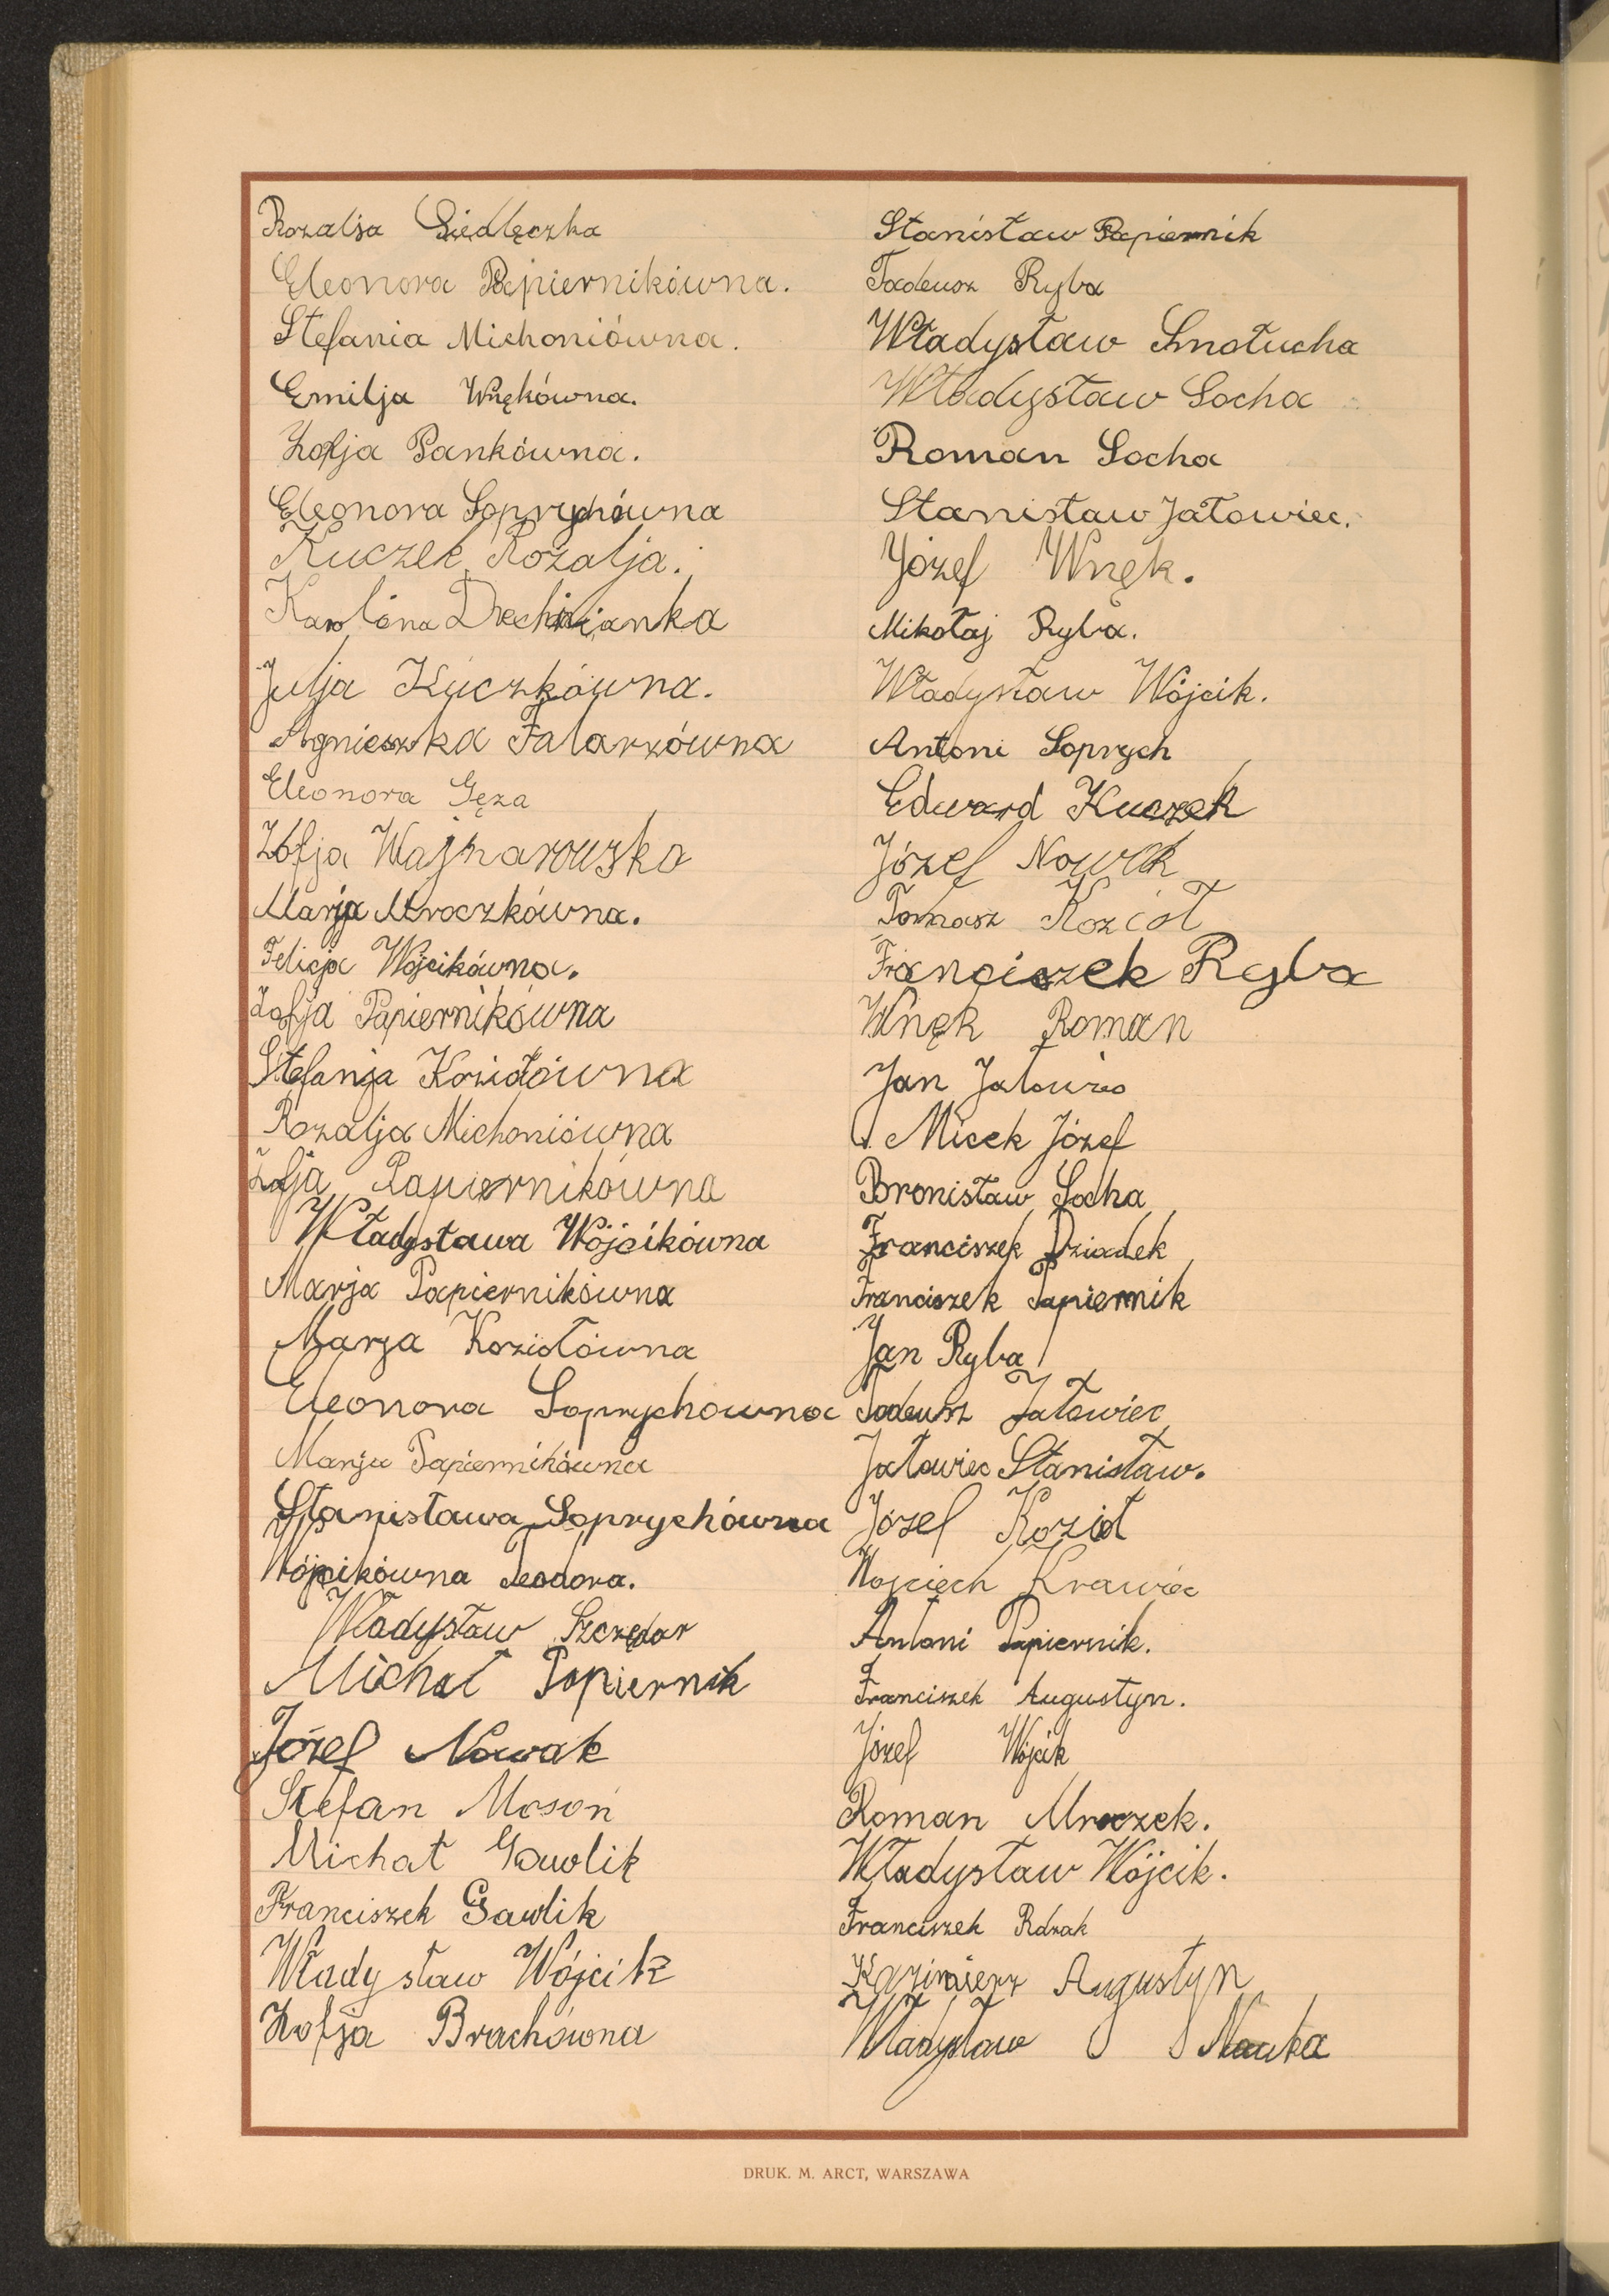 Rozalja Siedlęczka
Eleonora Papiernikówna.
Stefania Michoniówna.
Emilja Wnękówna.
Zofja Pankówna.
Eleonora Soprychówna
Kuczek Rozalja.
Karolina
Julja Kuczkówna.
Agnieszka Falarzówna
Eleonora Gęza
Zofja Wajnarowska
Marja Mroczkówna.
Felicja Wójcikówna.
Zofja Papiernikówna
Stefanja Koziołówna
Rozalja Michoniówna
Zofja Papiernikówna
Władysława Wójcikówna
Marja Papiernikówna
Marja Koziołówna
Eleonora Soprychowna
Marja Papiernikówna
Stanisława Soprychówna
Wójcikówna Teodora.
Władysław Szczędor
Michał Papiernik
Józef Nowak
Stefan Mosoń
Michał Gawlik
Franciszek Gawlik
Władysław Wójcik
Zofja Brachówna
Stanisław Papiernik
Tadeusz Ryba
Władysław Smołucha
Władysław Socha
Roman Socha
Stanisław Jałowiec.
Józef Wnęk.
Mikołaj Ryba.
Władysław Wójcik.
Antoni Soprych
Edward Kuczek
Józef Nowak
Tomasz Kozioł
Franciszek Ryba
Wnęk Roman
Jan Jałowiec
Micek Józef
Bronisław Socha
Franciszek Dziadek
Franciszek Papiernik
Jan Ryba
Tadeusz Jałowiec
Jałowiec Stanisław.
Józef Kozioł
Wojciech Krawiec
Antoni Papiernik.
Franciszek Augustyn.
Józef Wójcik
Roman Mroczek.
Władysław Wójcik.
Franciszek Rdzak
Kazimierz Augustyn
Władysław Nauka
DRUK. M. ARCT, WARSZAWA